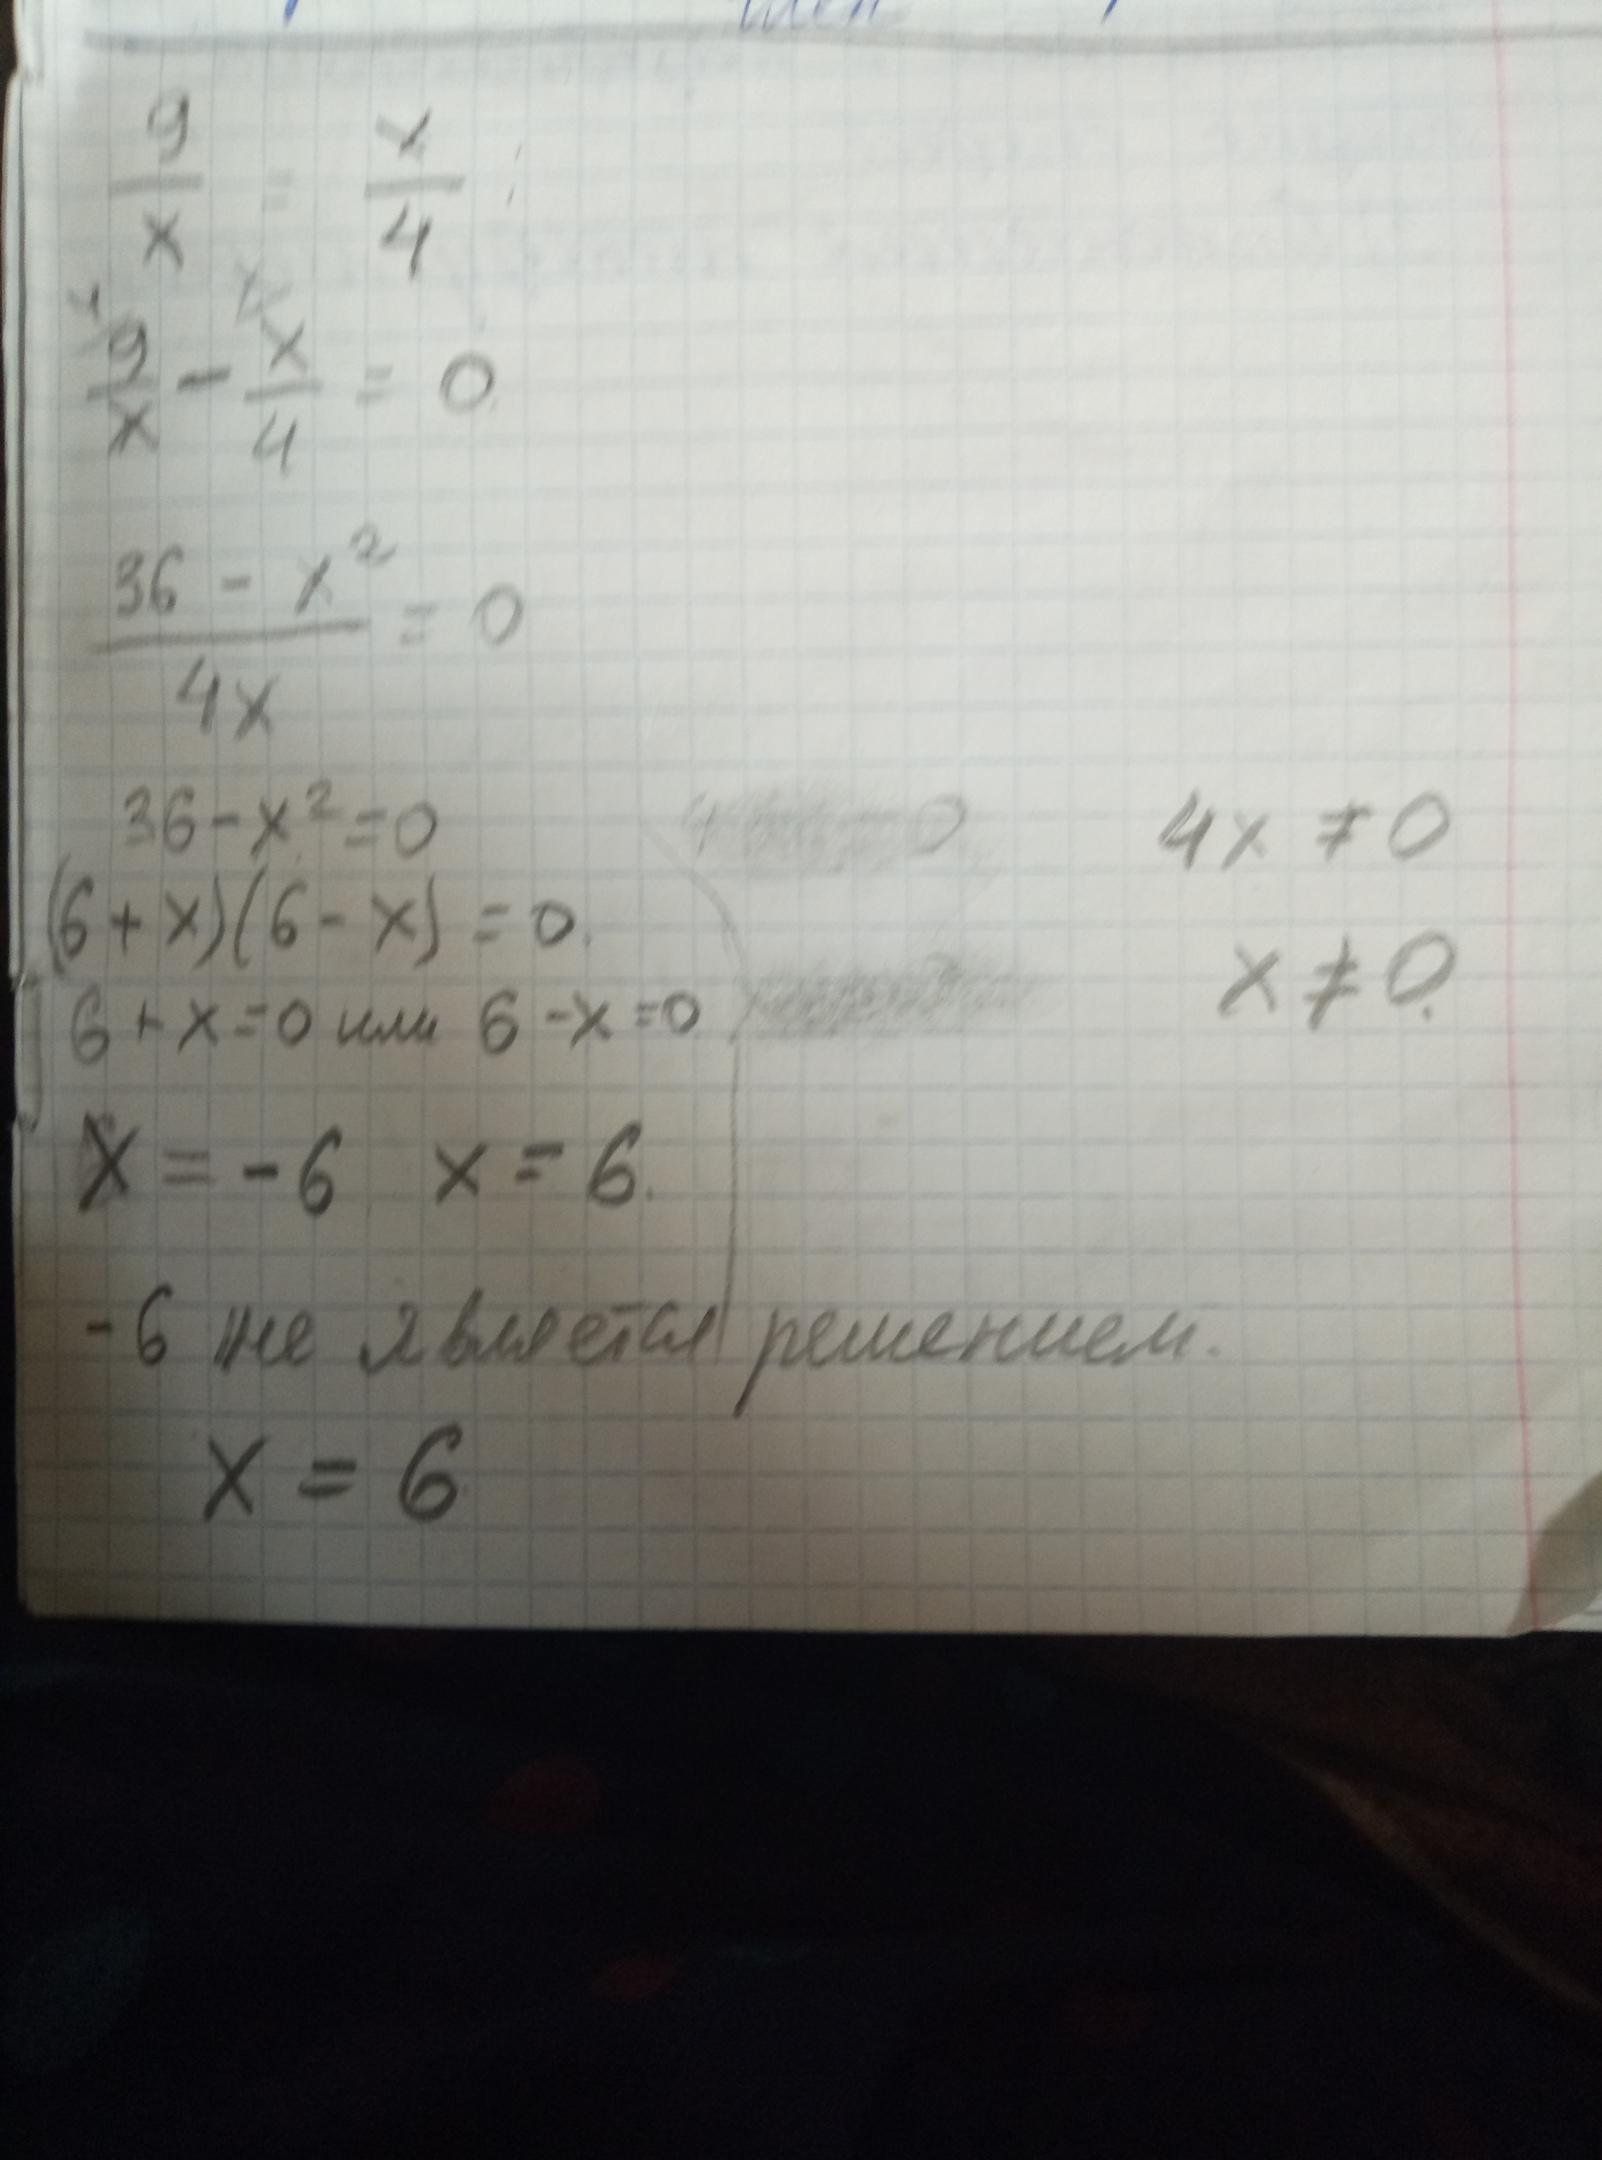 9/x = x/4;
9/x - x/4 = 0
(36 - x²)/(4x) = 0
36 - x² = 0 4x ≠ 0
(6 + x)(6 - x) = 0. x ≠ 0.
6 + x = 0 или 6 - x = 0
x = -6 x = 6.
-6 не является решением.
x = 6